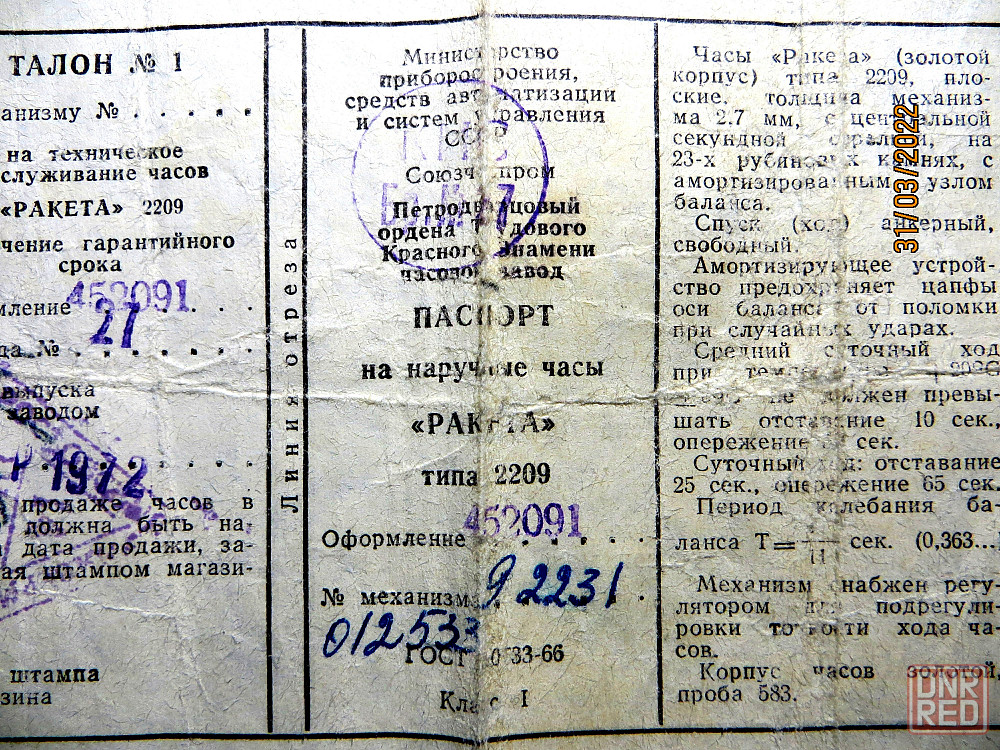 ТАЛОН № 1
анизму № . . . . .
на техническое
служивание часов
«РАКЕТА» 2209
чение гарантийного
срока
452091
мление . . . . .
27
да № . . . . . . .
выпуска
заводом
1972
продаже часов в
должна быть на-
дата продажи, за-
ая штампом магази-
штампа
зина
Линия отреза
Министерство
приборостроения,
средств автоматизации
и систем управления
СССР
Союзчаспром
Петродворцовый
ордена Трудового
Красного Знамени
часовой завод
ПАСПОРТ
на наручные часы
«РАКЕТА»
типа 2209
452091
Оформление . . . . .
№ механизма 92231 .
012533
ГОСТ 33-66
Класс I
Часы «Ракета» (золотой
корпус) типа 2209, пло-
ские, толщина механиз-
ма 2.7 мм, с центральной
секундной стрелкой, на
23-х рубиновых камнях, с
амортизированным узлом
баланса.
Спуск (ход) анкерный,
свободный.
Амортизирующее устрой-
ство предохраняет цапфы
оси баланса от поломки
при случайных ударах.
Средний суточный ход
при
не должен превы-
шать отставание 10 сек.,
опережение сек.
Суточный ход: отставание
25 сек., опережение 65 сек.
Период колебания ба-
ланса Т= 11 сек. (0,363...
Механизм снабжен регу-
лятором для подрегули-
ровки точности хода ча-
сов.
Корпус часов золотой,
проба 583.
31/03/2022
DNR
RED